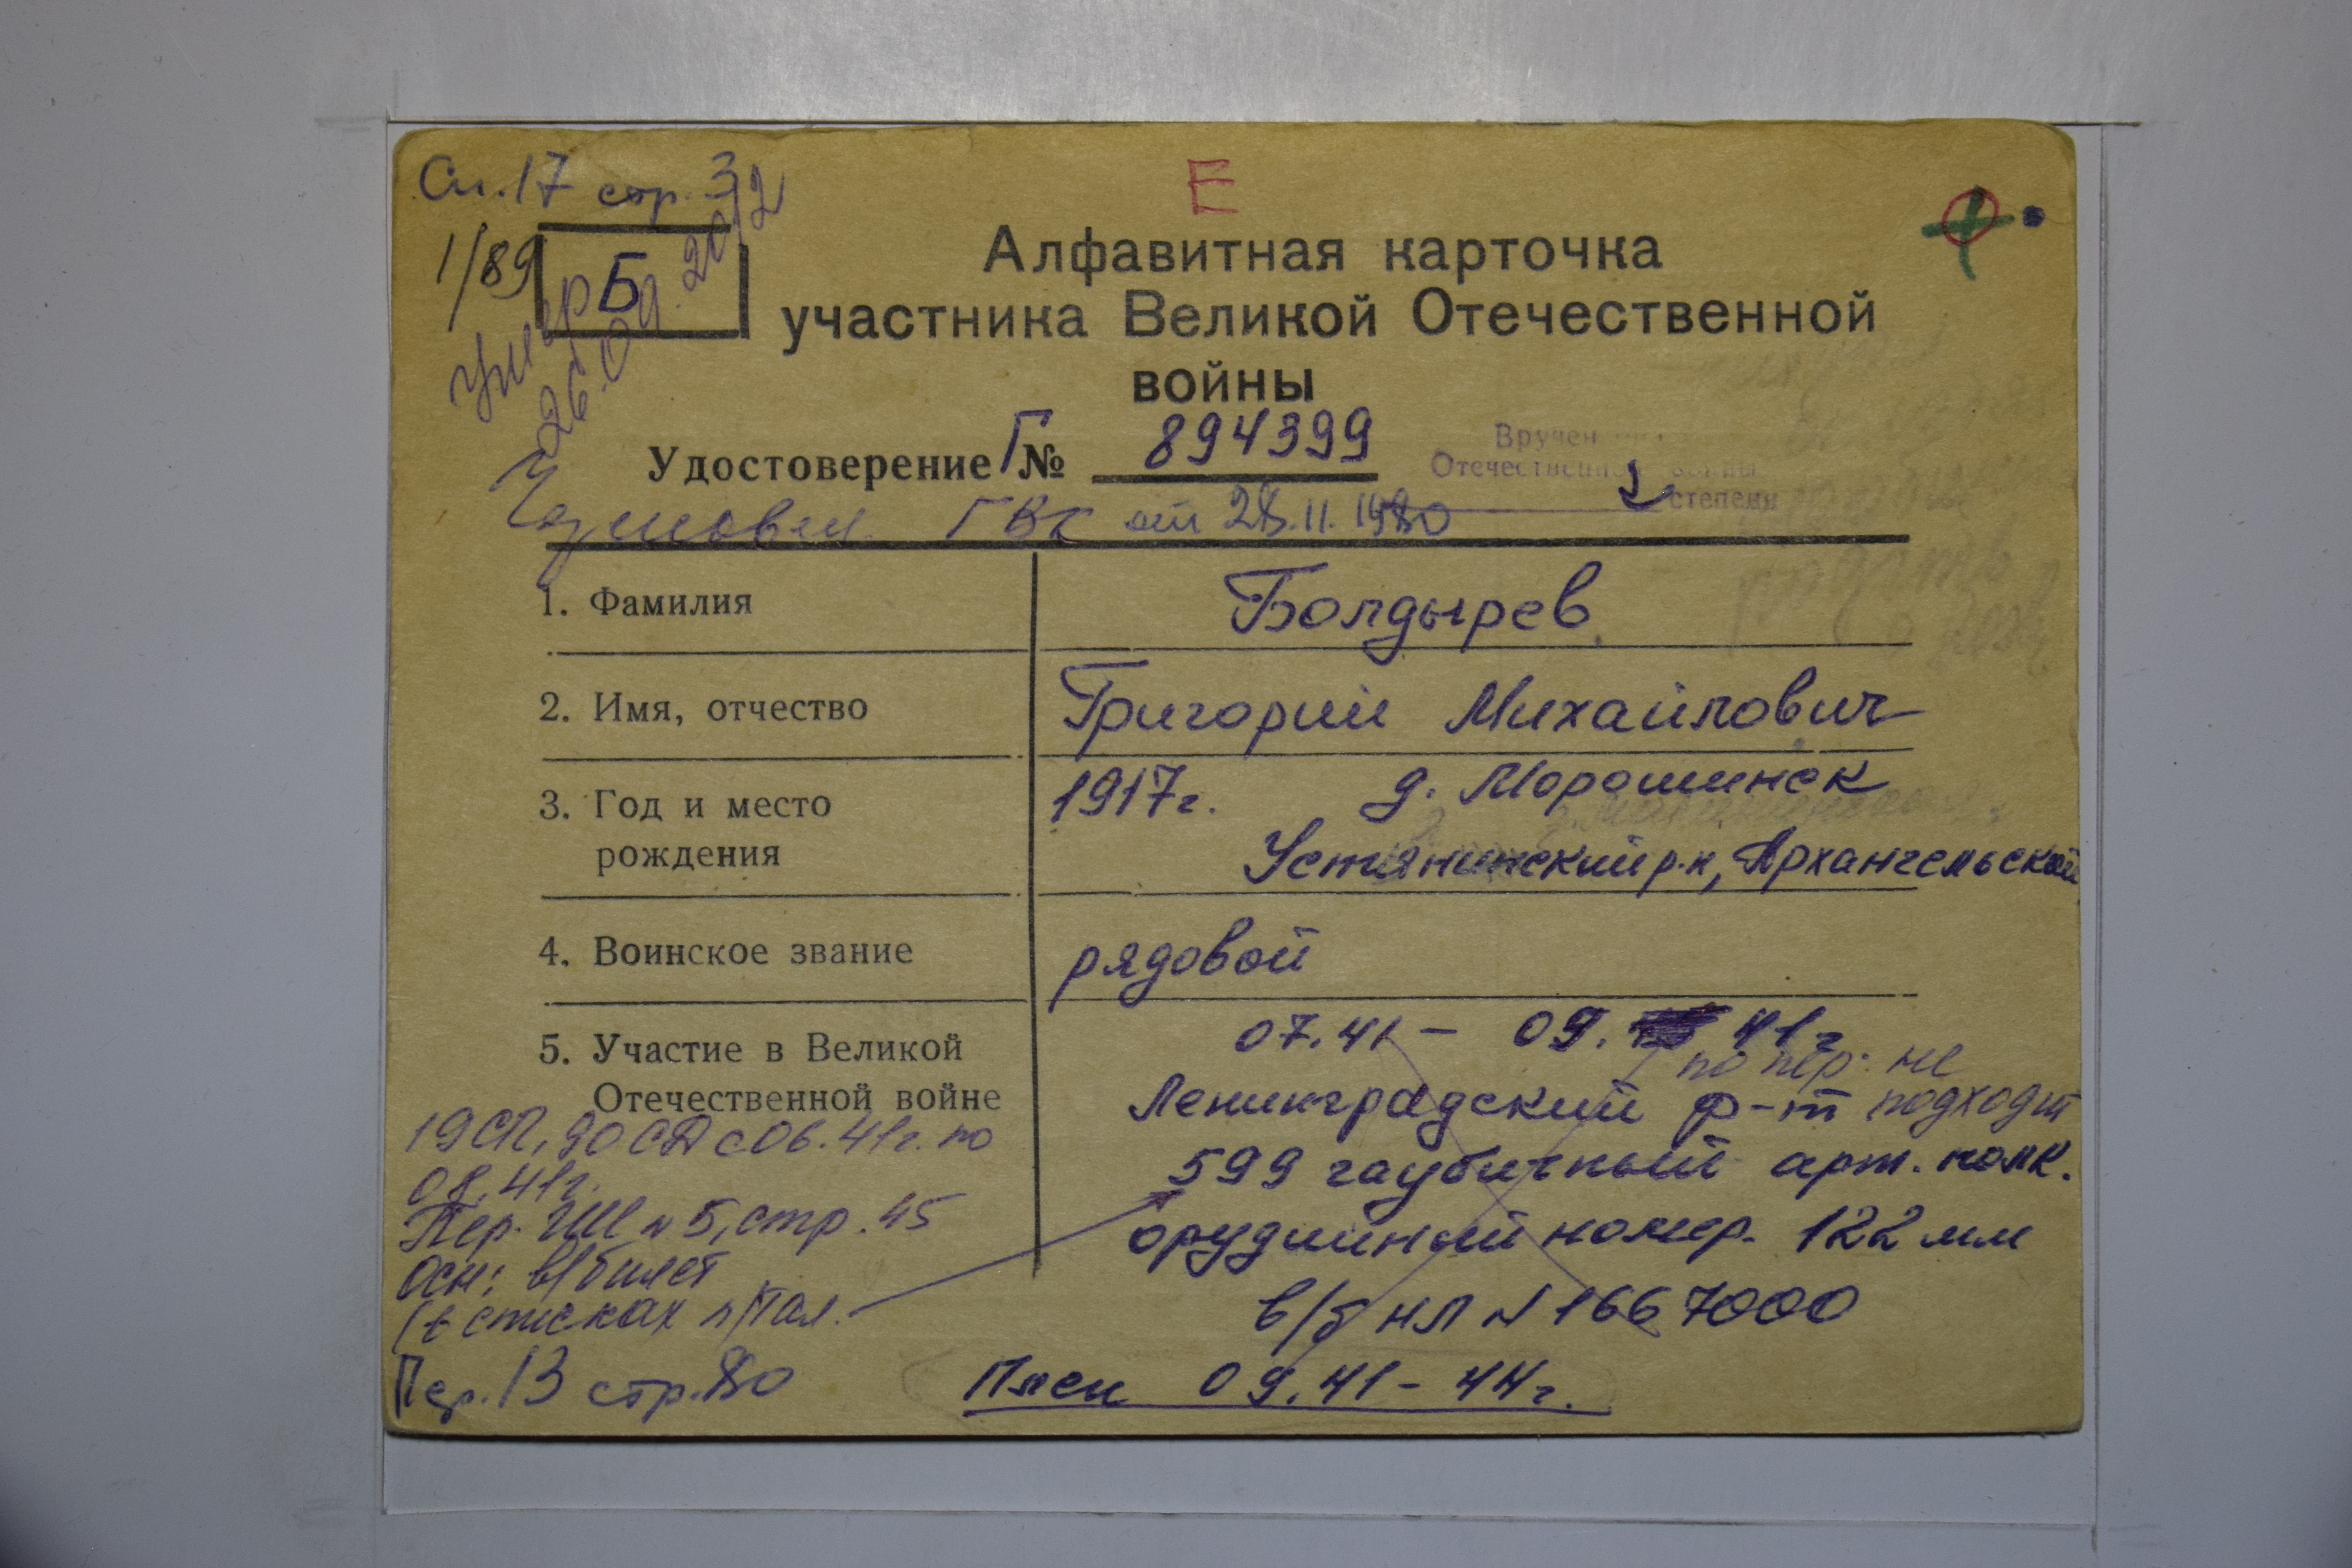 Сп.17 стр.3
Е
1/89
Б
умер
26.09.2012
Алфавитная карточка
участника Великой Отечественной
войны
Удостоверение Г № 894399
Вручен
Отечественной войны
2 степени
ГВК от 28.11.1980
1. Фамилия Болдырев
2. Имя, отчество Григорий Михайлович
3. Год и место 1917г. д. Морошинск
рождения Устьянский р-н, Архангельской
4. Воинское звание рядовой
5. Участие в Великой 07.41 – 09. 41г
Отечественной войне
по пер. не
подходит
Ленинградский ф-т
599 гаубичный арт. полк.
орудийный номер. 122 мм
в/б НЛ № 1667000
Плен 09.41 – 44г.
19 СП, 90 СД с 06.41г. по
08.41г.
Пер. ГШ № 5, стр. 45
Осн: в/билет
(в списках п/пол.
Пер.13 стр.80